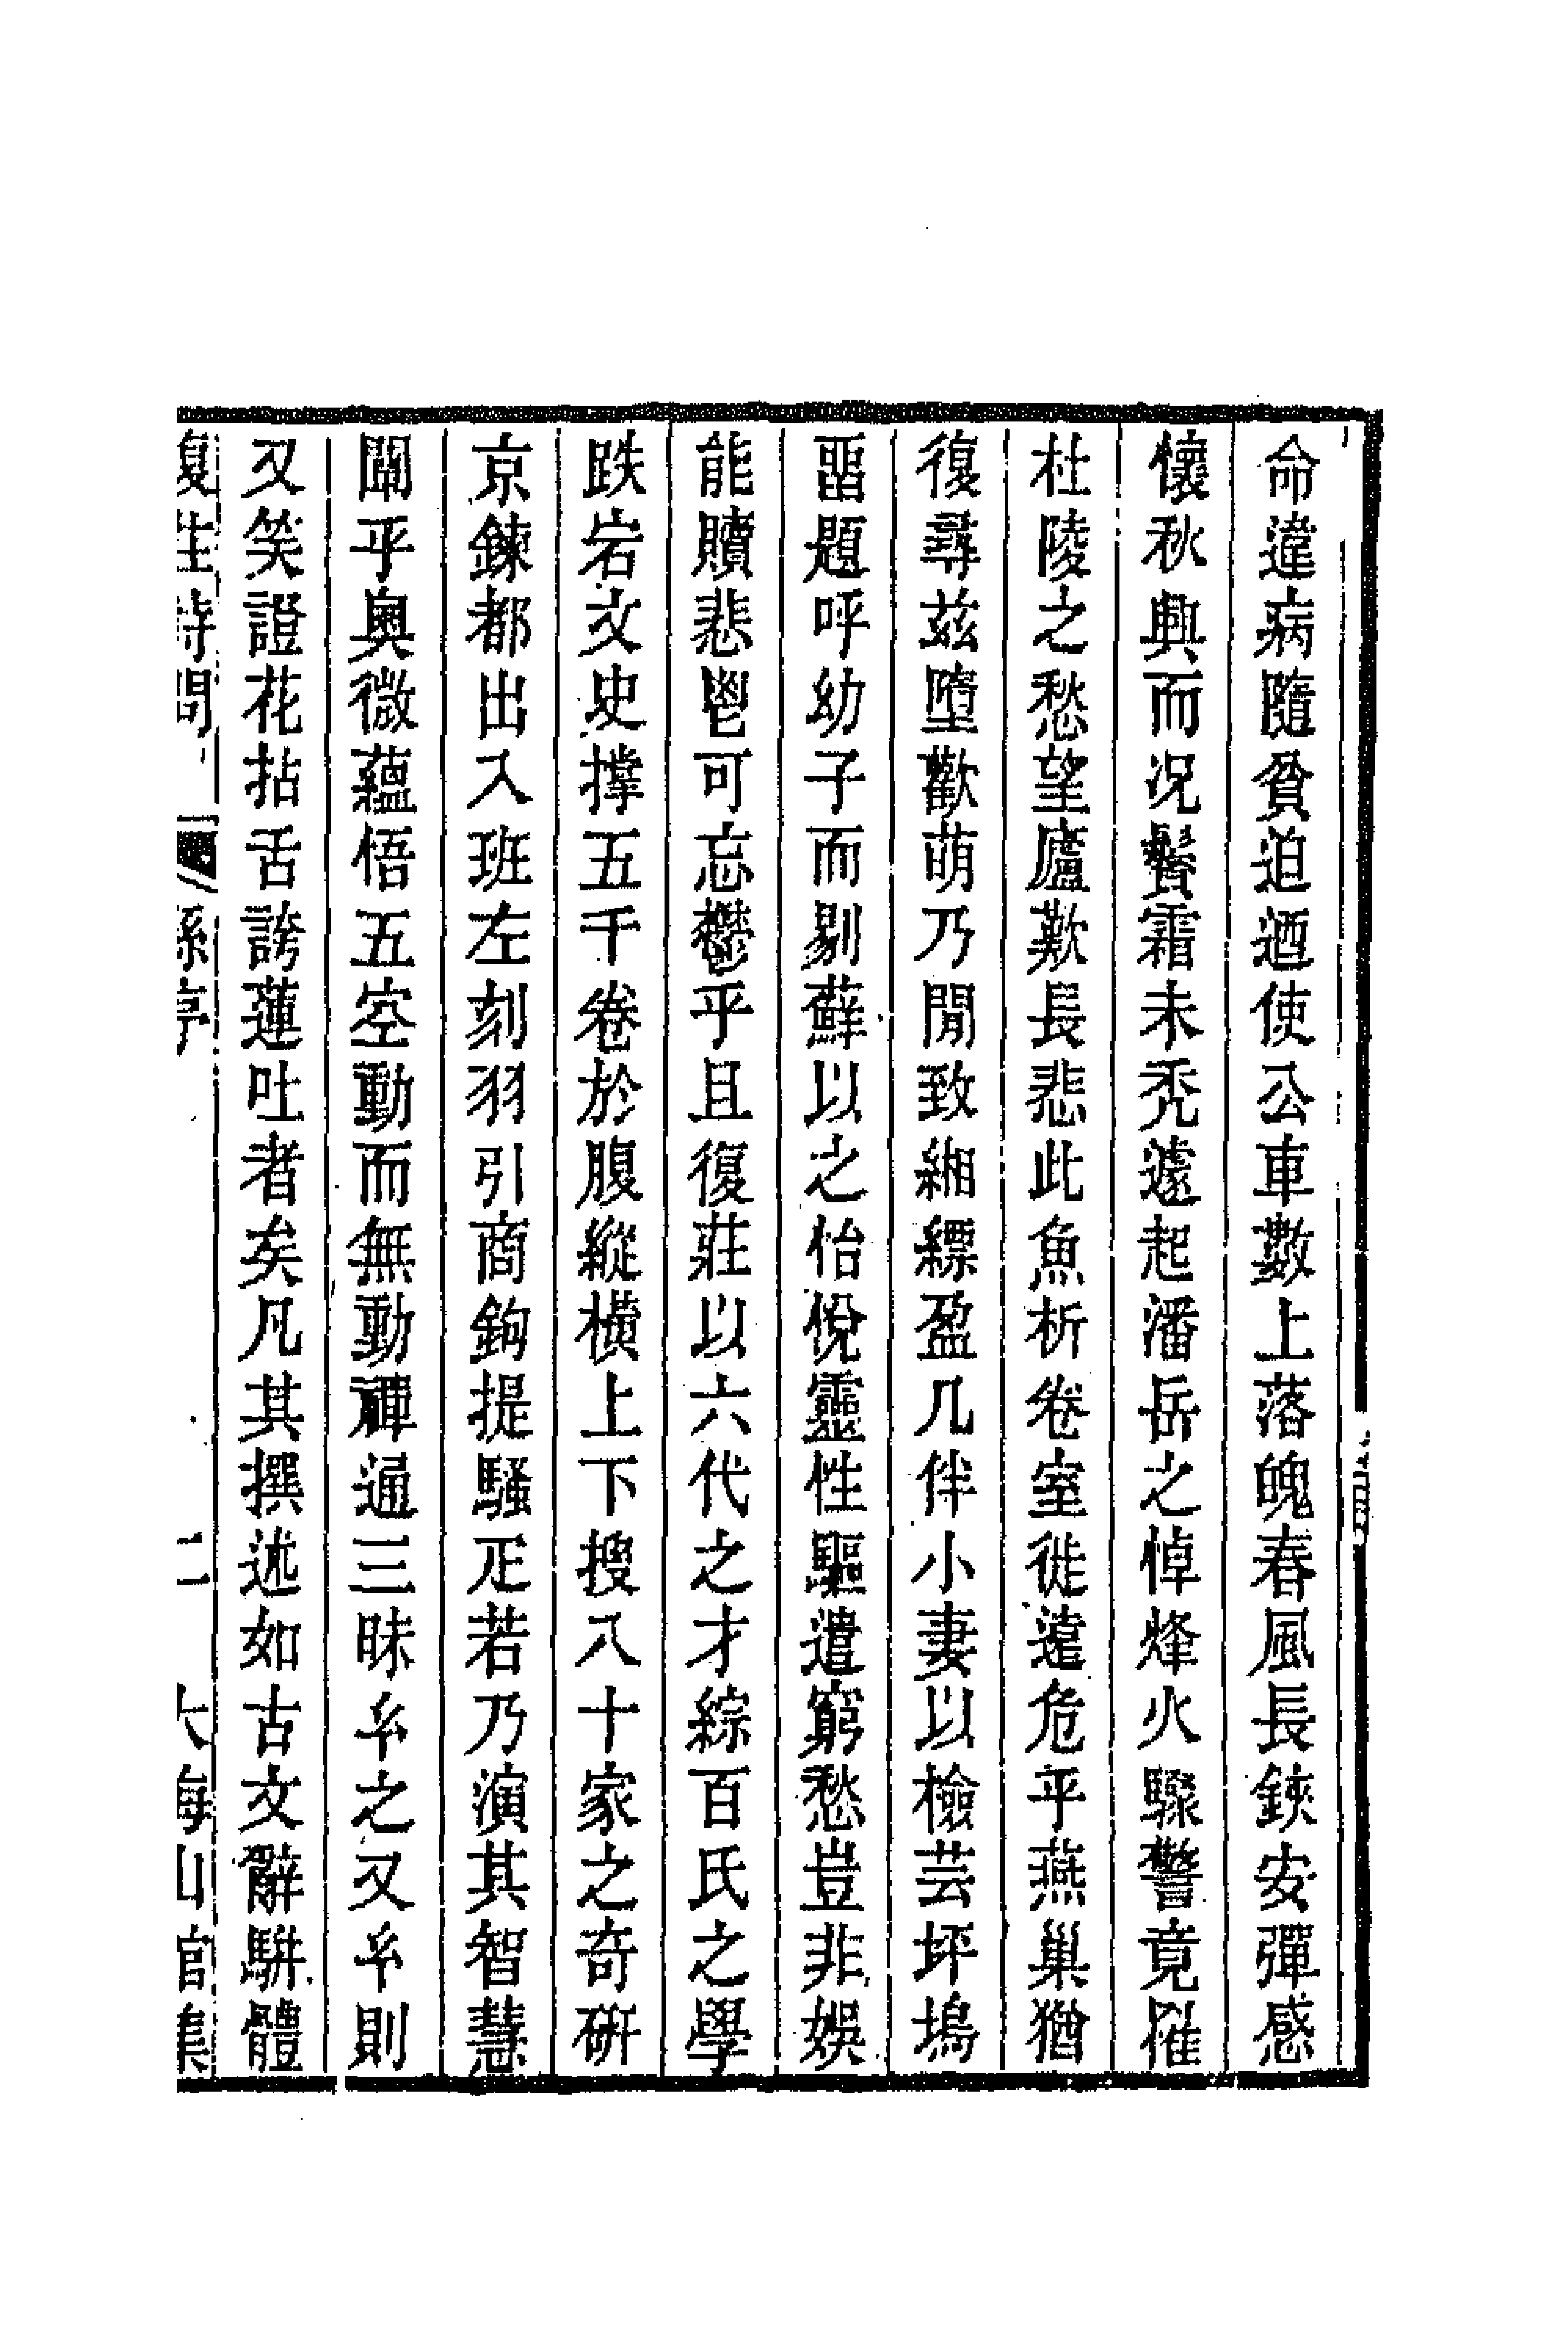 命違病隨貧迫迺使公車數上落魄春風長鋏安彈感
懷秋興而况鬢霜未禿遽起潘岳之悼烽火驟警竟罹
杜陵之愁望廬歎長悲此魚析卷室徙遠危乎燕巢猶
復尋茲墮歡萌乃閒致緗縹盈几伴小妻以檢芸坪塢
畱題呼幼子而剔蘚以之怡悅靈性驅遣窮愁豈非娛
能贖悲鬯可忘鬱乎且復莊以六代之才綜百氏之學
跌宕文史撐五千卷於腹縱橫上下搜八十家之奇硏
京鍊都出入班左刻羽引商鉤提騷疋若乃演其智慧
闖乎奧微蘊悟五空動而無動禪通三昧玄之又玄則
又笑證花拈舌誇蓮吐者矣凡其撰述如古文辭駢體
復莊詩問 孫序 二 大梅山館集